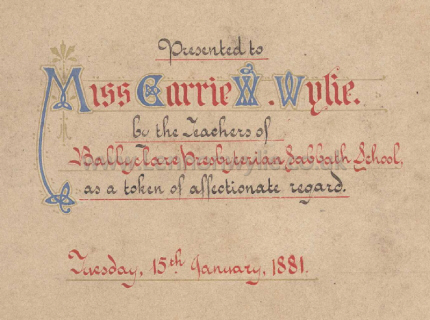 Presented to
Miss Carrie W. Wylie.
by the Teachers of
Ballyclare Presbyterian Sabbath School,
as a token of affectionate regard.
Tuesday, 15th January, 1881.